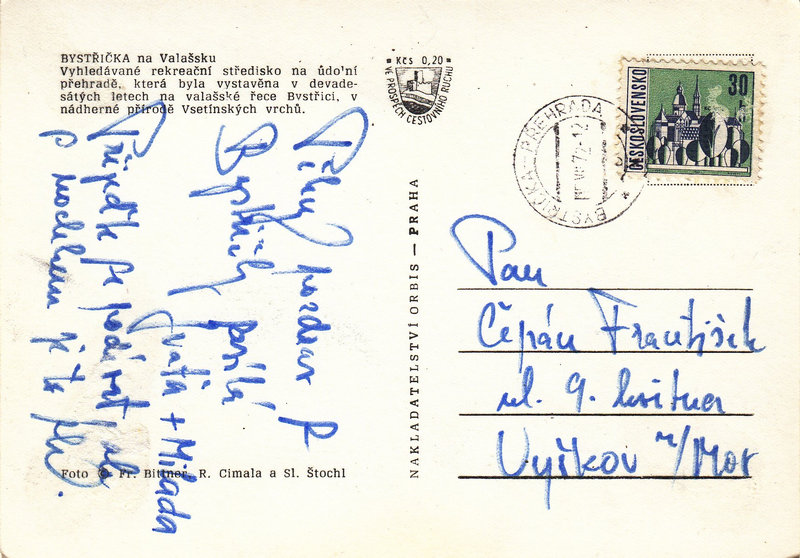 BYSTŘIČKA na Valašsku
Vyhledávané rekreační středisko na údolní
přehradě, která byla vystavěna v devade-
sátých letech na valašské řece Bystřici, v
nádherné přírodě Vsetínských vrchů.
Kčs 0,20
VE PROSPĚCH CESTOVNÍHO RUCHU
ČESKOSLOVENSKO
30 h
BYSTŘIČKA-PŘEHRADA
NAKLADATELSTVÍ ORBIS — PRAHA
pozdrav z
Bystřičky posílá
+ Milada
Přijeďte se podívat
je to
Pan
Čépán František
ul. 9. května
Vyškov n/Mor
Foto © Fr. Bittner, R. Cimala a Sl. Štochl